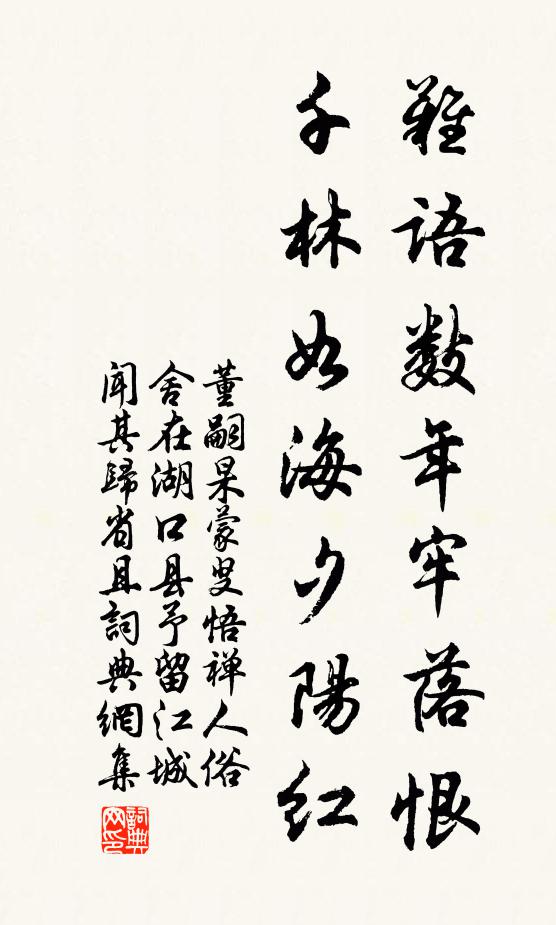 難語數年牢落恨
千林如海夕陽紅
董嗣杲蒙叟悟禅人俗
舍在湖口县予留江城
聞其歸省且詞典網集
詞典网印